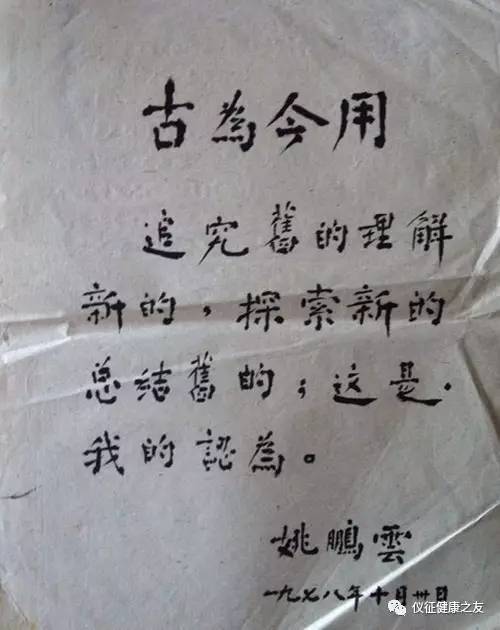 古為今用
追究舊的理解
新的，探索新的
总结舊的；这是
我的認為。
姚鵬雲
一九七八年十月卅日
仪征健康之友